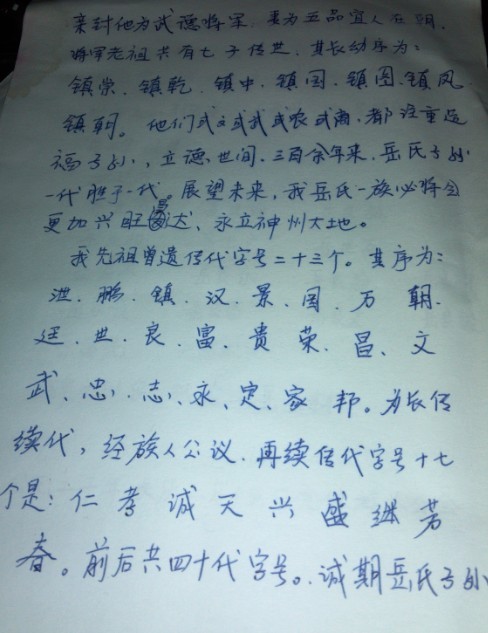 亲封他为武德将军，妻为五品宜人在朝，
将军老祖共有七子传世，其长幼序为：
镇崇、镇乾、镇中、镇国、镇图、镇凤
镇朝。他们或文或武或农或商，都注重造
福子孙，立德世间，三百余年来，岳氏子孙
一代胜于一代。展望未来，我岳氏一族必将会
更加兴旺发达、永立神州大地。
我先祖曾遗传代字号二十三个。其序为：
洪、鹏、镇、汉、景、国、万、朝、
廷、世、良、富、贵、荣、昌、文
武、忠、志、永、定、家、邦。为长传
续代，经族人公议、再续传代字号十七
个是：仁孝诚天兴盛继芳
春。前后共四十代字号。诚期岳氏子孙